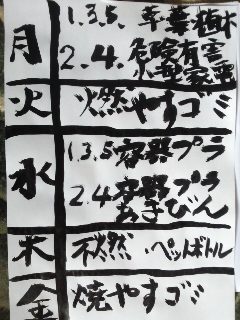 月 1.3.5. 草葉植木
2.4. 危険有害
小型家電
火 燃やすゴミ
水 1.3.5 容器プラ
2.4 容器プラ
あきびん
木 不燃・ペットボトル
金 焼やすゴミ